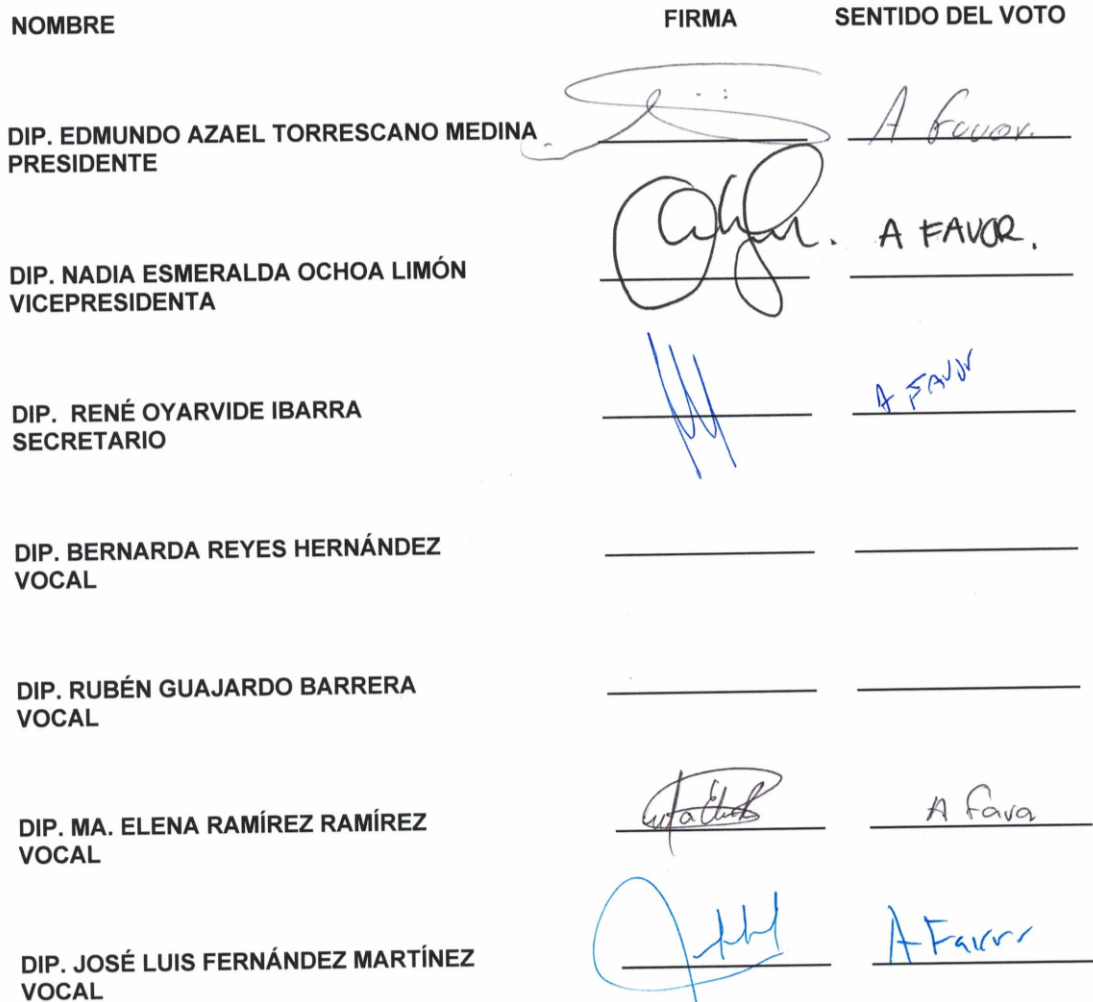 NOMBRE FIRMA SENTIDO DEL VOTO
DIP. EDMUNDO AZAEL TORRESCANO MEDINA A Favor.
PRESIDENTE
A FAVOR.
DIP. NADIA ESMERALDA OCHOA LIMÓN
VICEPRESIDENTA
A FAVOR
DIP. RENÉ OYARVIDE IBARRA
SECRETARIO
DIP. BERNARDA REYES HERNÁNDEZ
VOCAL
DIP. RUBÉN GUAJARDO BARRERA
VOCAL
DIP. MA. ELENA RAMÍREZ RAMÍREZ A Favor
VOCAL
DIP. JOSÉ LUIS FERNÁNDEZ MARTÍNEZ A Favor
VOCAL